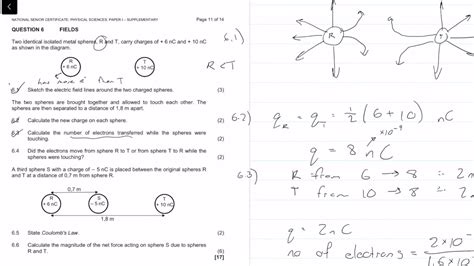 NATIONAL SENIOR CERTIFICATE: PHYSICAL SCIENCES: PAPER I – SUPPLEMENTARY
Page 11 of 14
QUESTION 6 FIELDS
Two identical isolated metal spheres, R and T, carry charges of + 6 nC and + 10 nC
as shown in the diagram.
R
+ 6 nC
T
+ 10 nC
has more e⁻ than T
6.1 Sketch the electric field lines around the two charged spheres. (3)
The two spheres are brought together and allowed to touch each other. The
spheres are then separated to a distance of 1,8 m apart.
6.2 Calculate the new charge on each sphere. (2)
6.3 Calculate the number of electrons transferred while the spheres were
touching. (2)
6.4 Did the electrons move from sphere R to T or from sphere T to R while the
spheres were touching? (2)
A third sphere S with a charge of – 5 nC is placed between the original spheres R
and T at a distance of 0,7 m from sphere R.
0,7 m
R
+ 6 nC
S
– 5 nC
T
+ 10 nC
1,8 m
6.5 State Coulomb's Law. (2)
6.6 Calculate the magnitude of the net force acting on sphere S due to spheres
R and T. (6)
[17]
6.1)
R
T
R < T
6.2) q_R = q_T = 1/2 (6 + 10) nC
×10⁻⁹
q = 8 nC
6.3) R from 6 → 8 ∴ 2
T from 10 → 8 ∴ 2
q = 2nC
no of electrons = 2×10⁻
1.6×10⁻